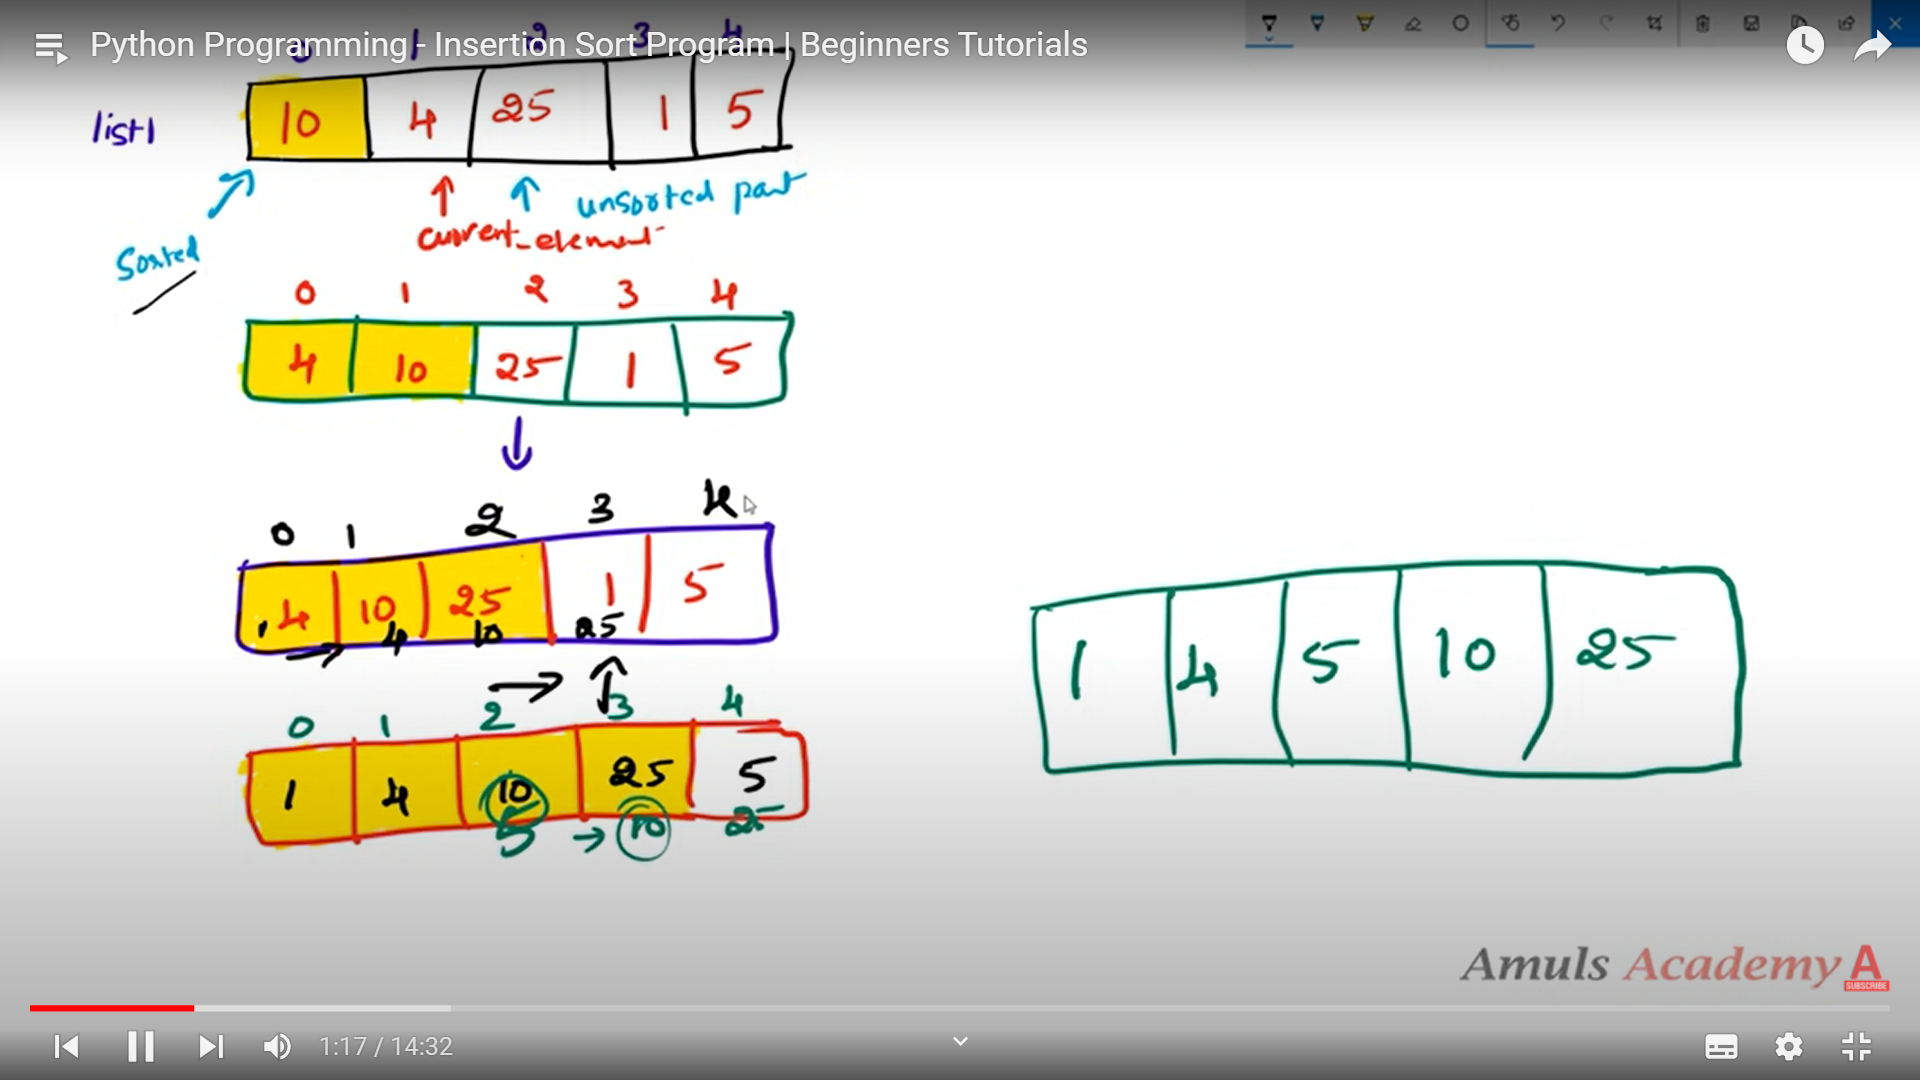 Python Programming - Insertion Sort Program | Beginners Tutorials
0 1 2 3 4
list1 10 4 25 1 5
unsorted part
current_element
Sorted
0 1 2 3 4
4 10 25 1 5
0 1 2 3 4
4 10 25 1 5
1 4 10 25
0 1 2 3 4
1 4 10 25 5
5 10 25
1 4 5 10 25
Amuls Academy A
SUBSCRIBE
1:17 / 14:32